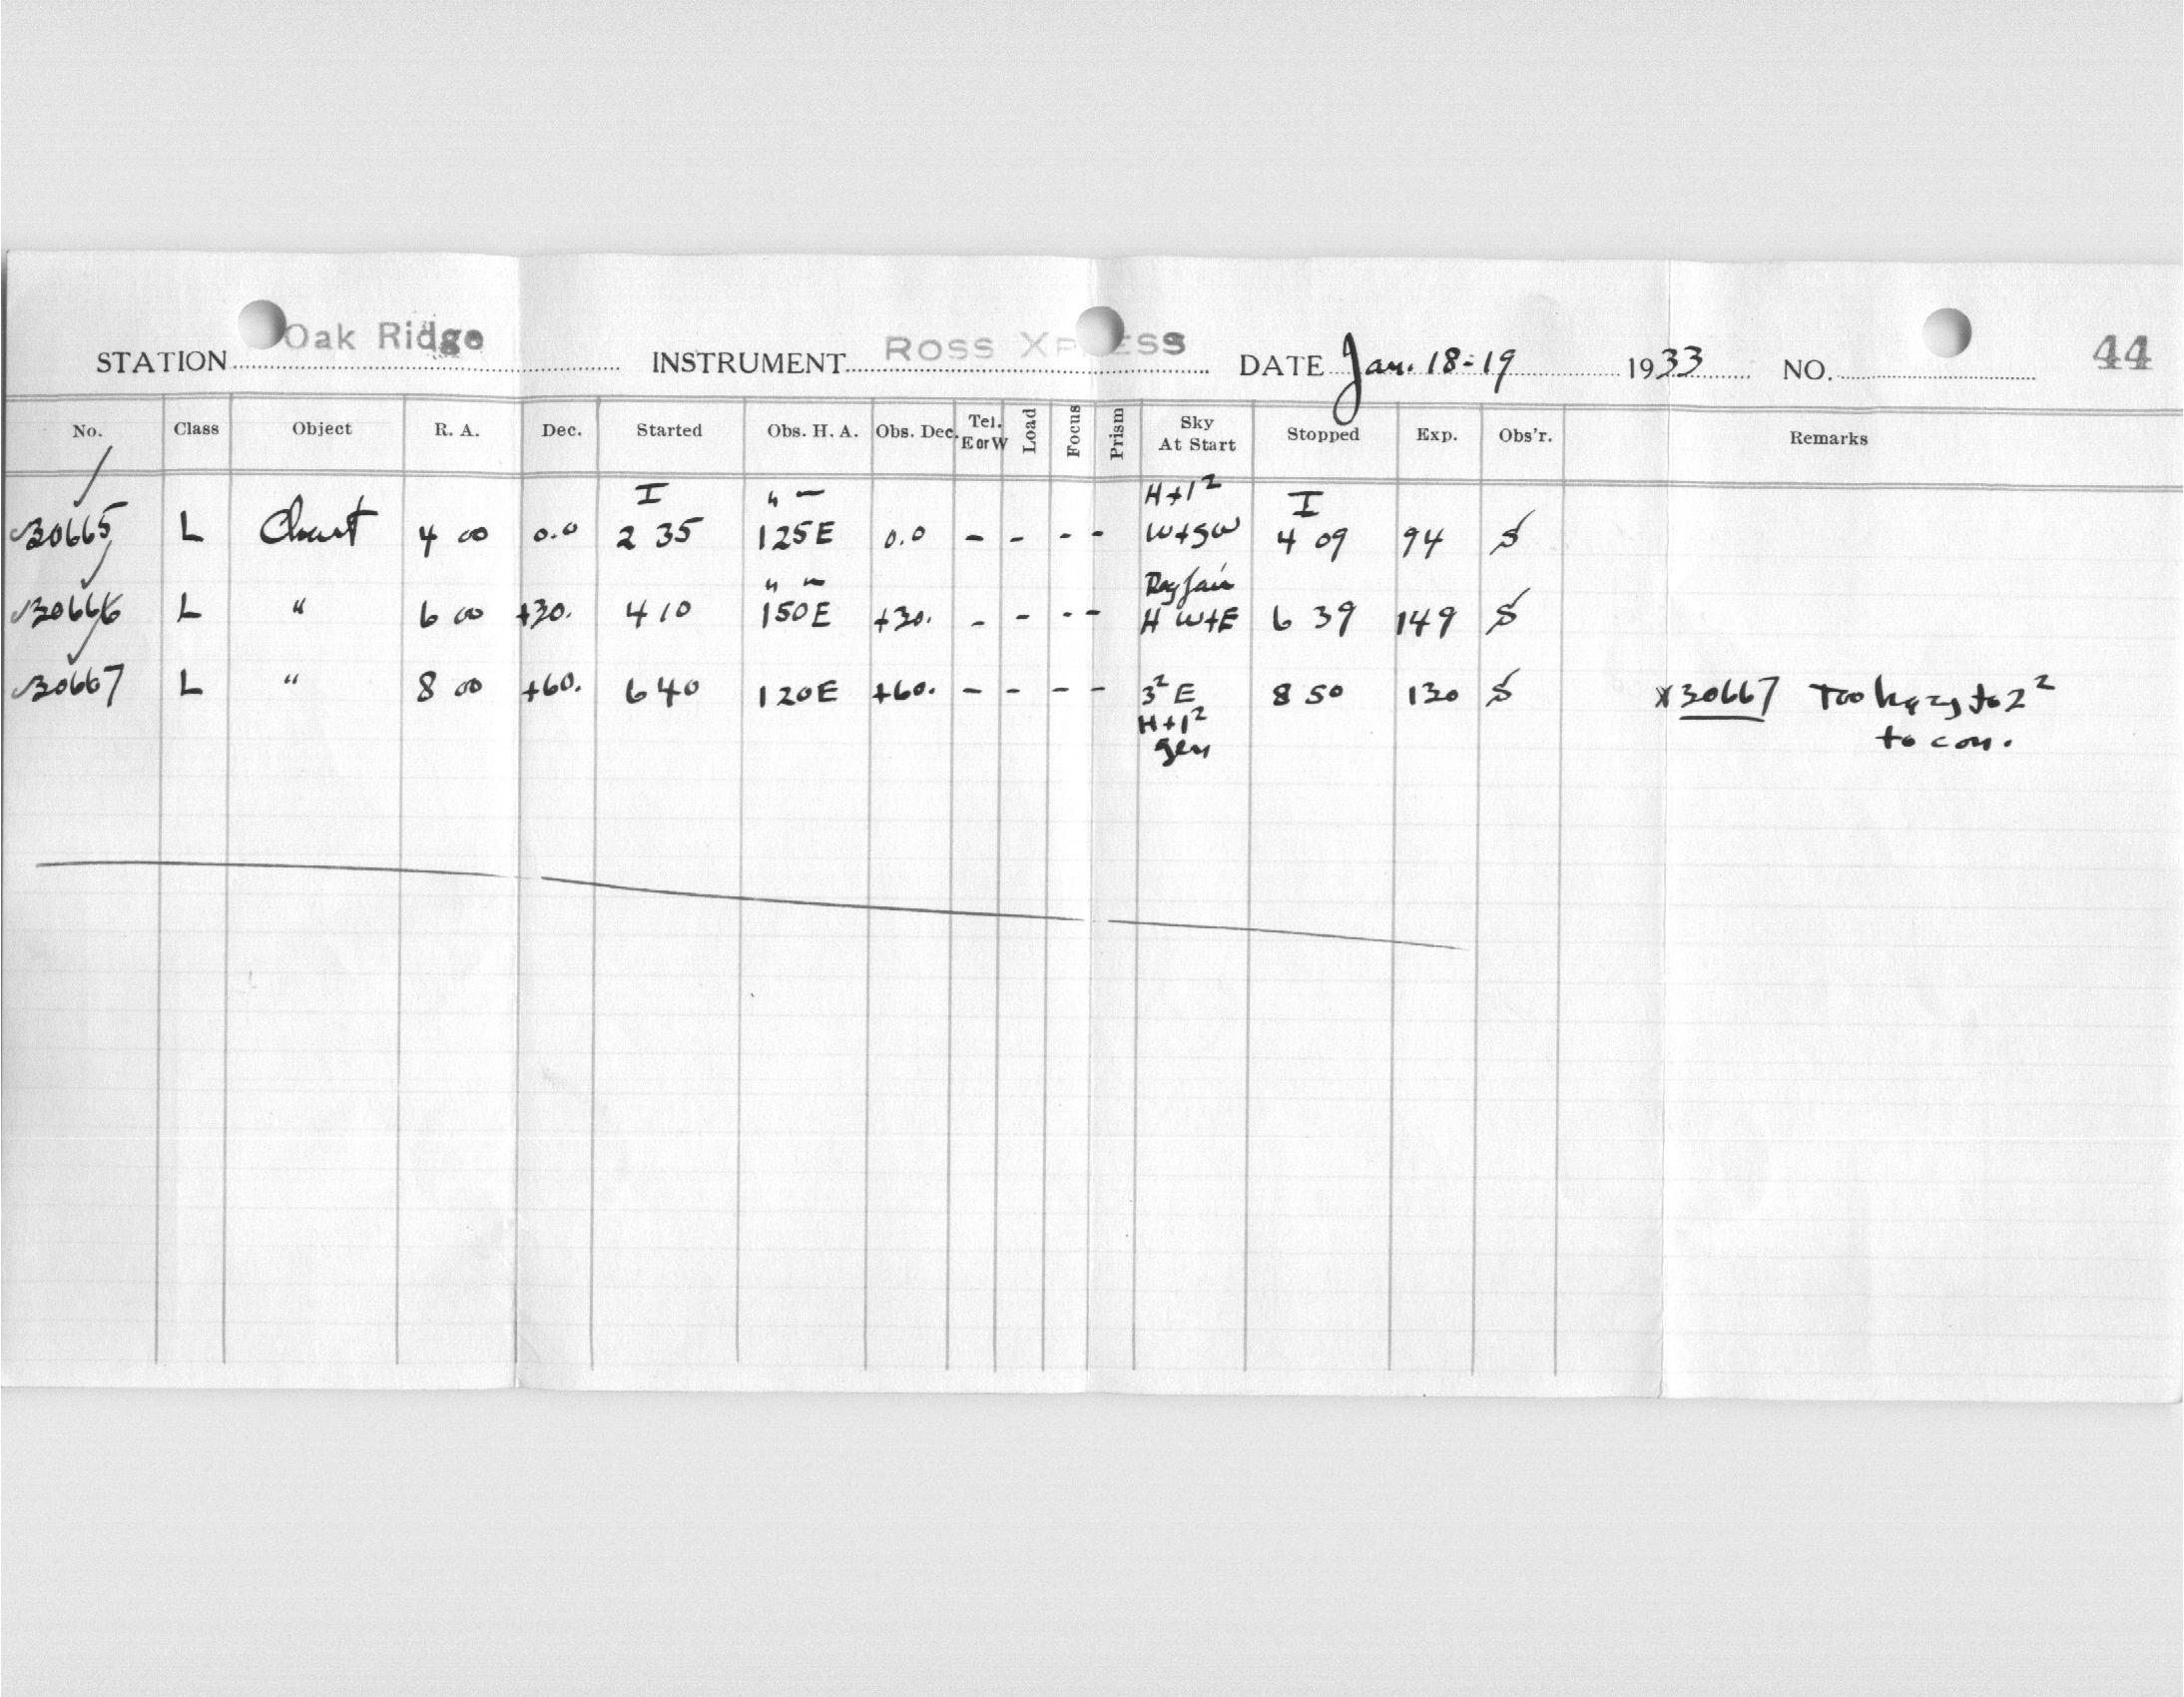 STATION Oak Ridge INSTRUMENT ROSS XPRESS DATE Jan. 18-19 1933 NO. 44
No. Class Object R. A. Dec. Started Obs. H. A. Obs. Dec. Tel. E or W Load Focus Prism Sky At Start Stopped Exp. Obs'r. Remarks
I " — H+1² I
30665 L Chart 4 00 0.0 2 35 125E 0.0 - - - - W+SW 4 09 94 S
" —
30666 L " 6 00 +30. 4 10 150E +30. - - - - H W+E 6 39 149 S
30667 L " 8 00 +60. 6 40 120E +60. - - - - 3² E 8 50 130 S x30667 Too hazy to 2²
H+1² to con.
gen